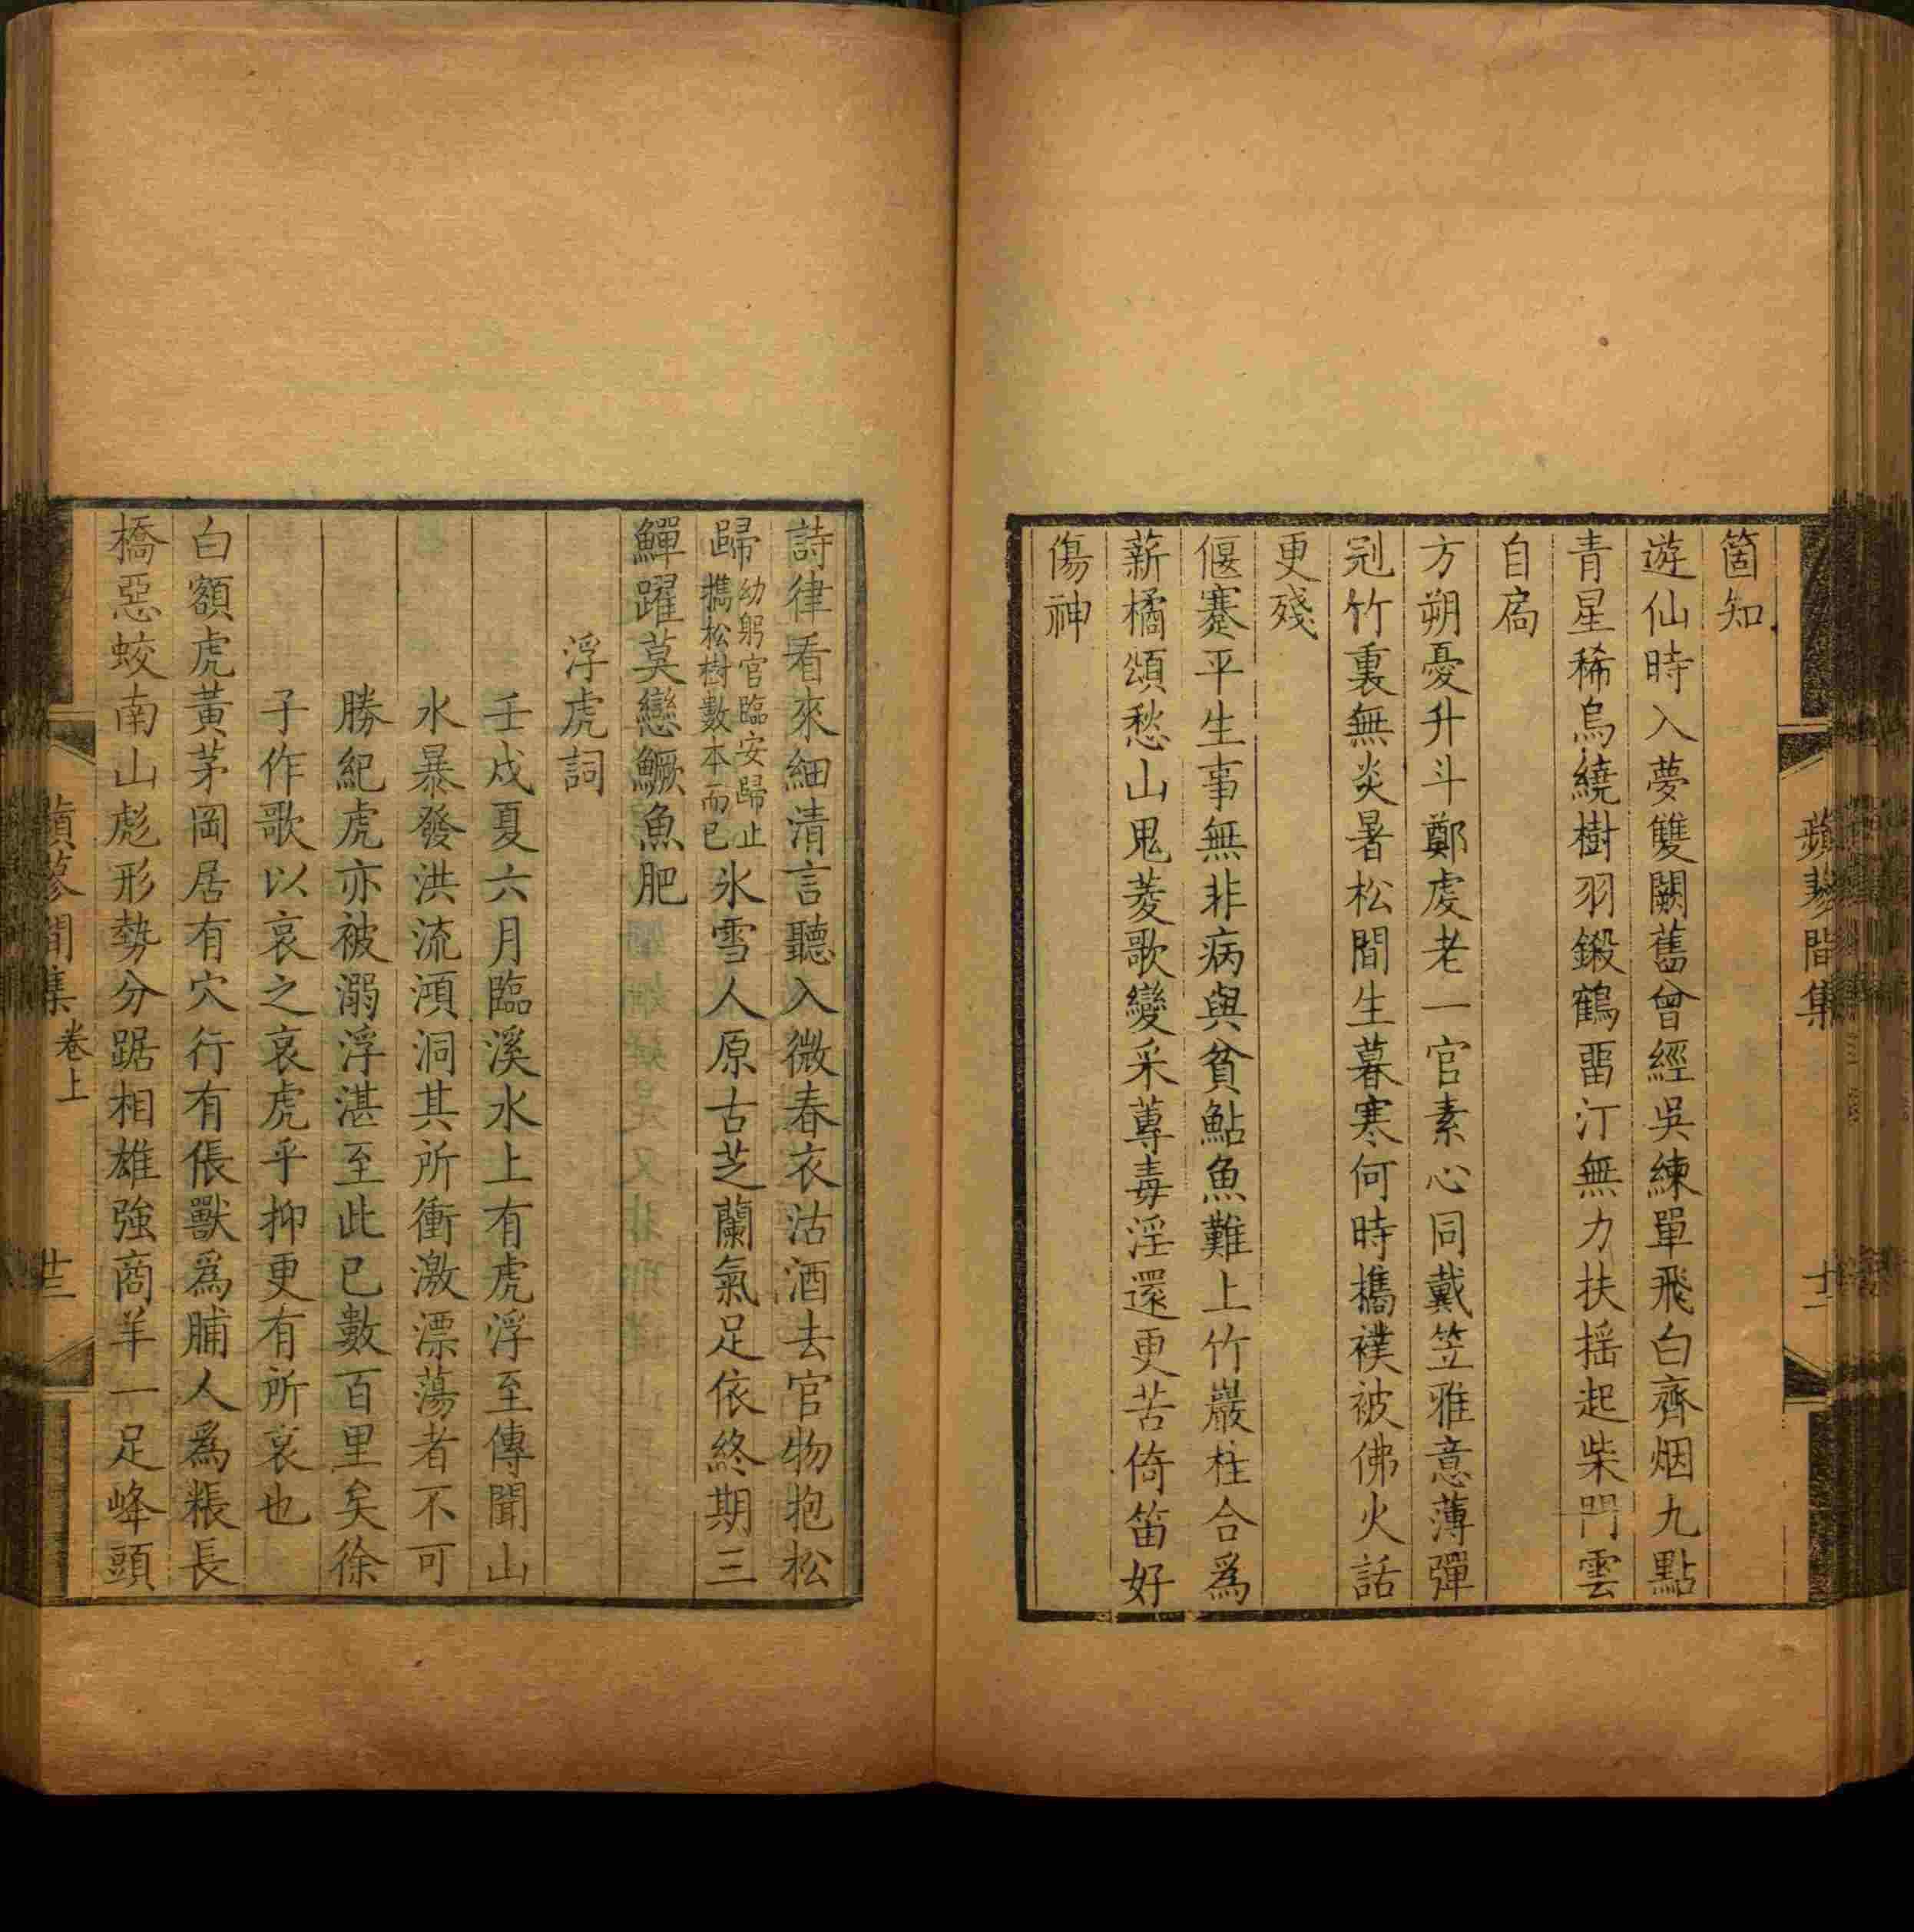 箇知
遊仙時入夢雙闕舊曾經吳練單飛白齊烟九點
青星稀烏繞樹羽鎩鶴畱汀無力扶搖起柴門雲
自扃
方朔憂升斗鄭虔老一官素心同戴笠雅意薄彈
冠竹裏無炎暑松間生暮寒何時攜襆被佛火話
更殘
偃蹇平生事無非病與貧鮎魚難上竹巖柱合爲
薪橘頌愁山鬼菱歌變采蓴毒淫還更苦倚笛好
傷神
蘋蓼閒集
十二
詩律看來細清言聽入微春衣沽酒去官物抱松
歸幼躬官臨安歸止攜松樹數本而已氷雪人原古芝蘭氣足依終期三
鱓躍莫戀鱖魚肥
浮虎詞
壬戌夏六月臨溪水上有虎浮至傳聞山
水暴發洪流澒洞其所衝激漂蕩者不可
勝紀虎亦被溺浮湛至此已數百里矣徐
子作歌以哀之哀虎乎抑更有所哀也
白額虎黃茅岡居有穴行有倀獸爲脯人爲粻長
橋惡蛟南山彪形勢分踞相雄強商羊一足峰頭
蘋蓼閒集
卷上
十三